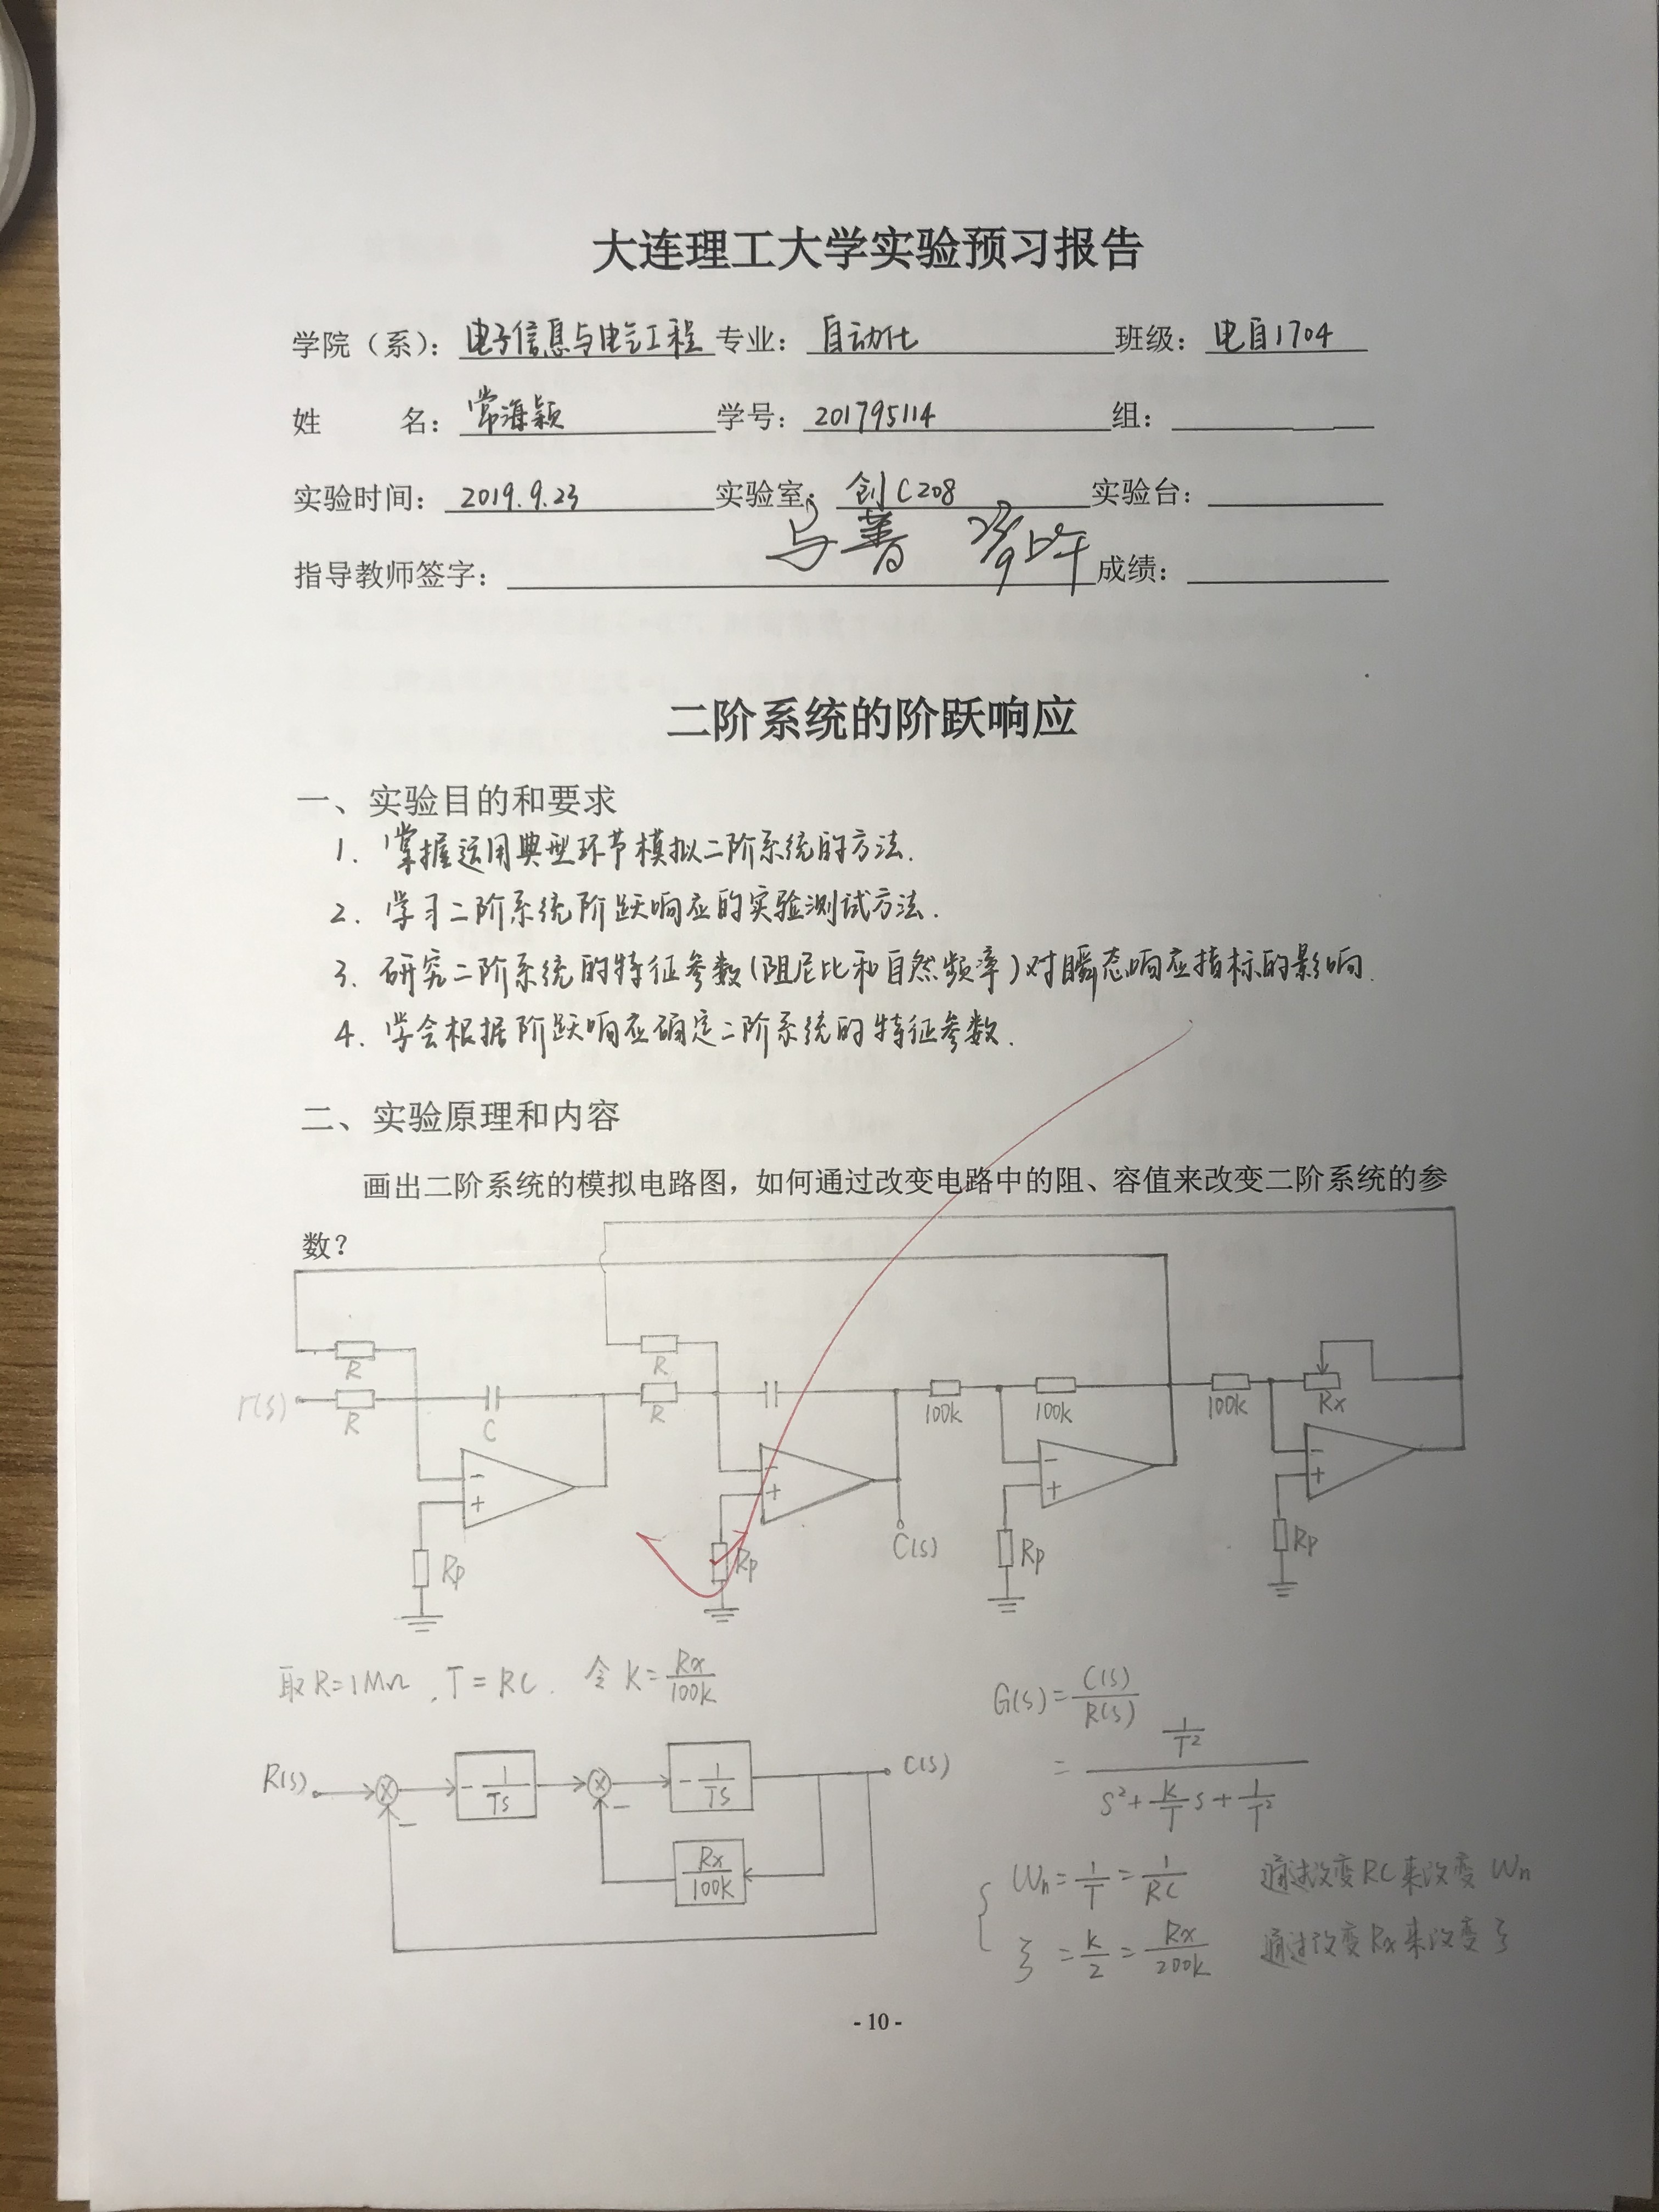 大连理工大学实验预习报告
学院（系）：电子信息与电气工程 专业：自动化 班级：电自1704
姓 名：常海颖 学号：201795114 组：
实验时间：2019.9.23 实验室：创C208 实验台：
指导教师签字： 成绩：
二阶系统的阶跃响应
一、实验目的和要求
1. 掌握运用典型环节模拟二阶系统的方法.
2. 学习二阶系统阶跃响应的实验测试方法.
3. 研究二阶系统的特征参数(阻尼比和自然频率)对瞬态响应指标的影响.
4. 学会根据阶跃响应确定二阶系统的特征参数.
二、实验原理和内容
画出二阶系统的模拟电路图，如何通过改变电路中的阻、容值来改变二阶系统的参
数？
R R
r(s) R C R 100k 100k 100k Rx
- + - + - + - +
Rp Rp C(s) Rp Rp
取R=1MΩ , T=RC. 令 K=Rx/100k
G(s)=C(s)/R(s)
R(s) - 1/TS - 1/TS C(s)
= (1/T²)/(S²+K/T S+1/T²)
Rx/100k
Wn=1/T=1/RC 通过改变RC来改变Wn
ξ=K/2=Rx/200k 通过改变Rx来改变ξ
- 10 -